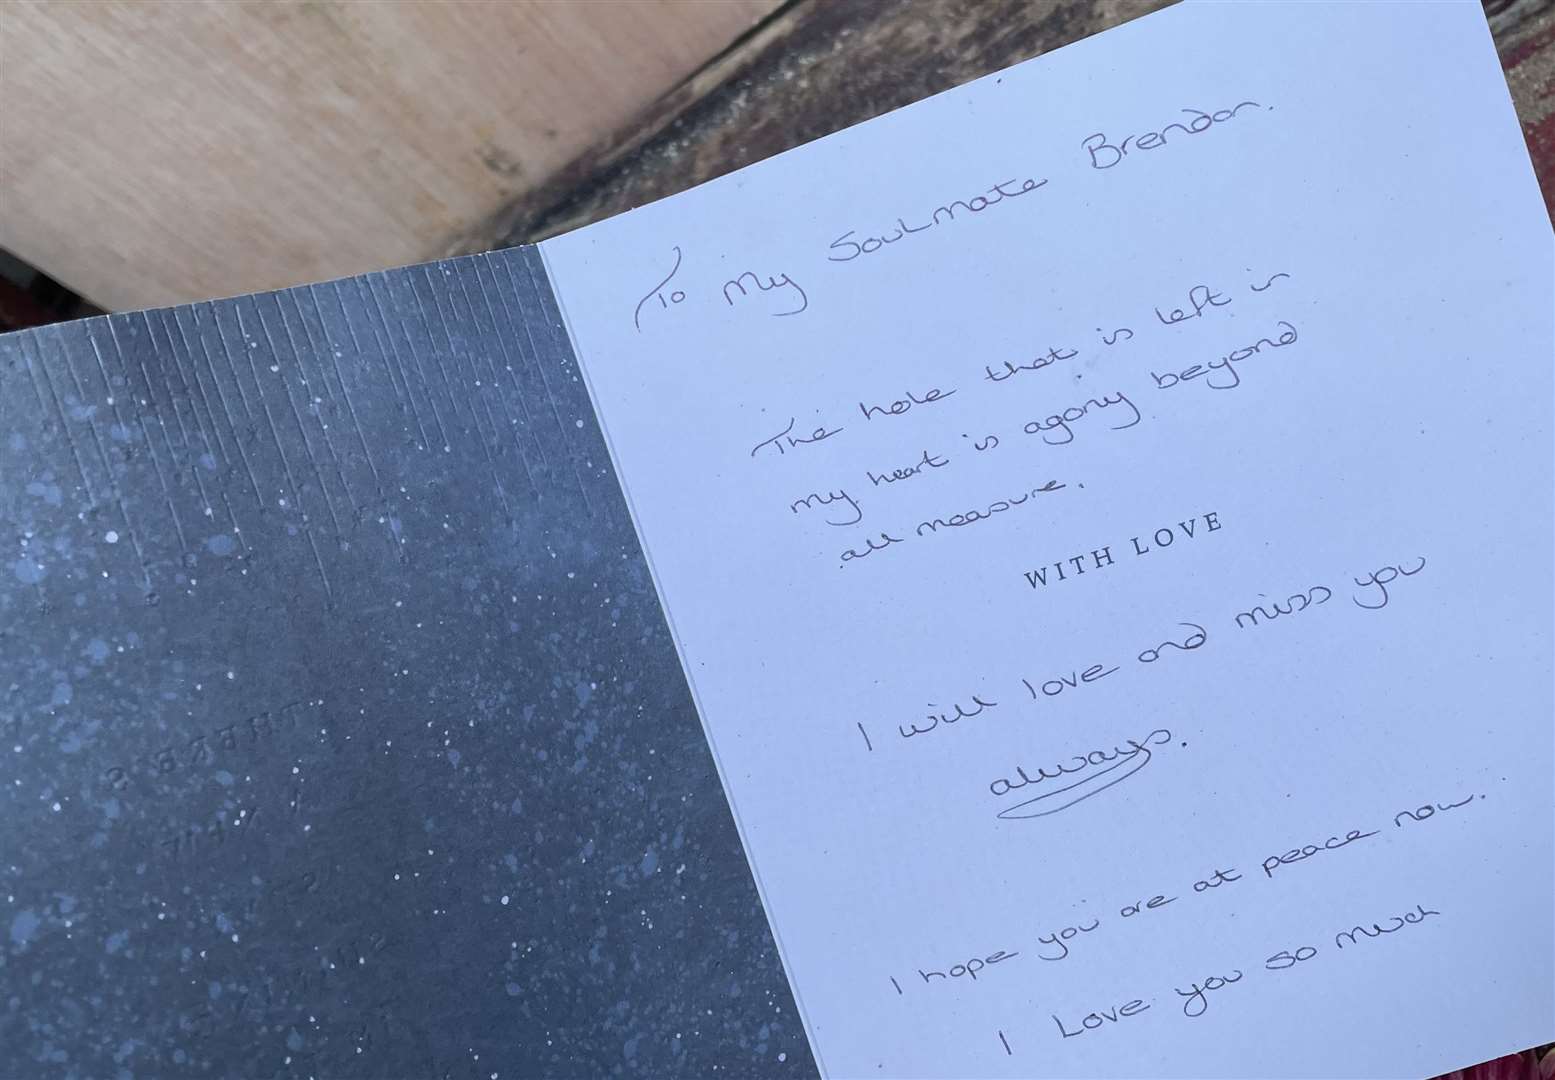 To My Soulmate Brendan.
The hole that is left in
my heart is agony beyond
all measure.
WITH LOVE
I will love and miss you
always.
I hope you are at peace now.
I Love you so much